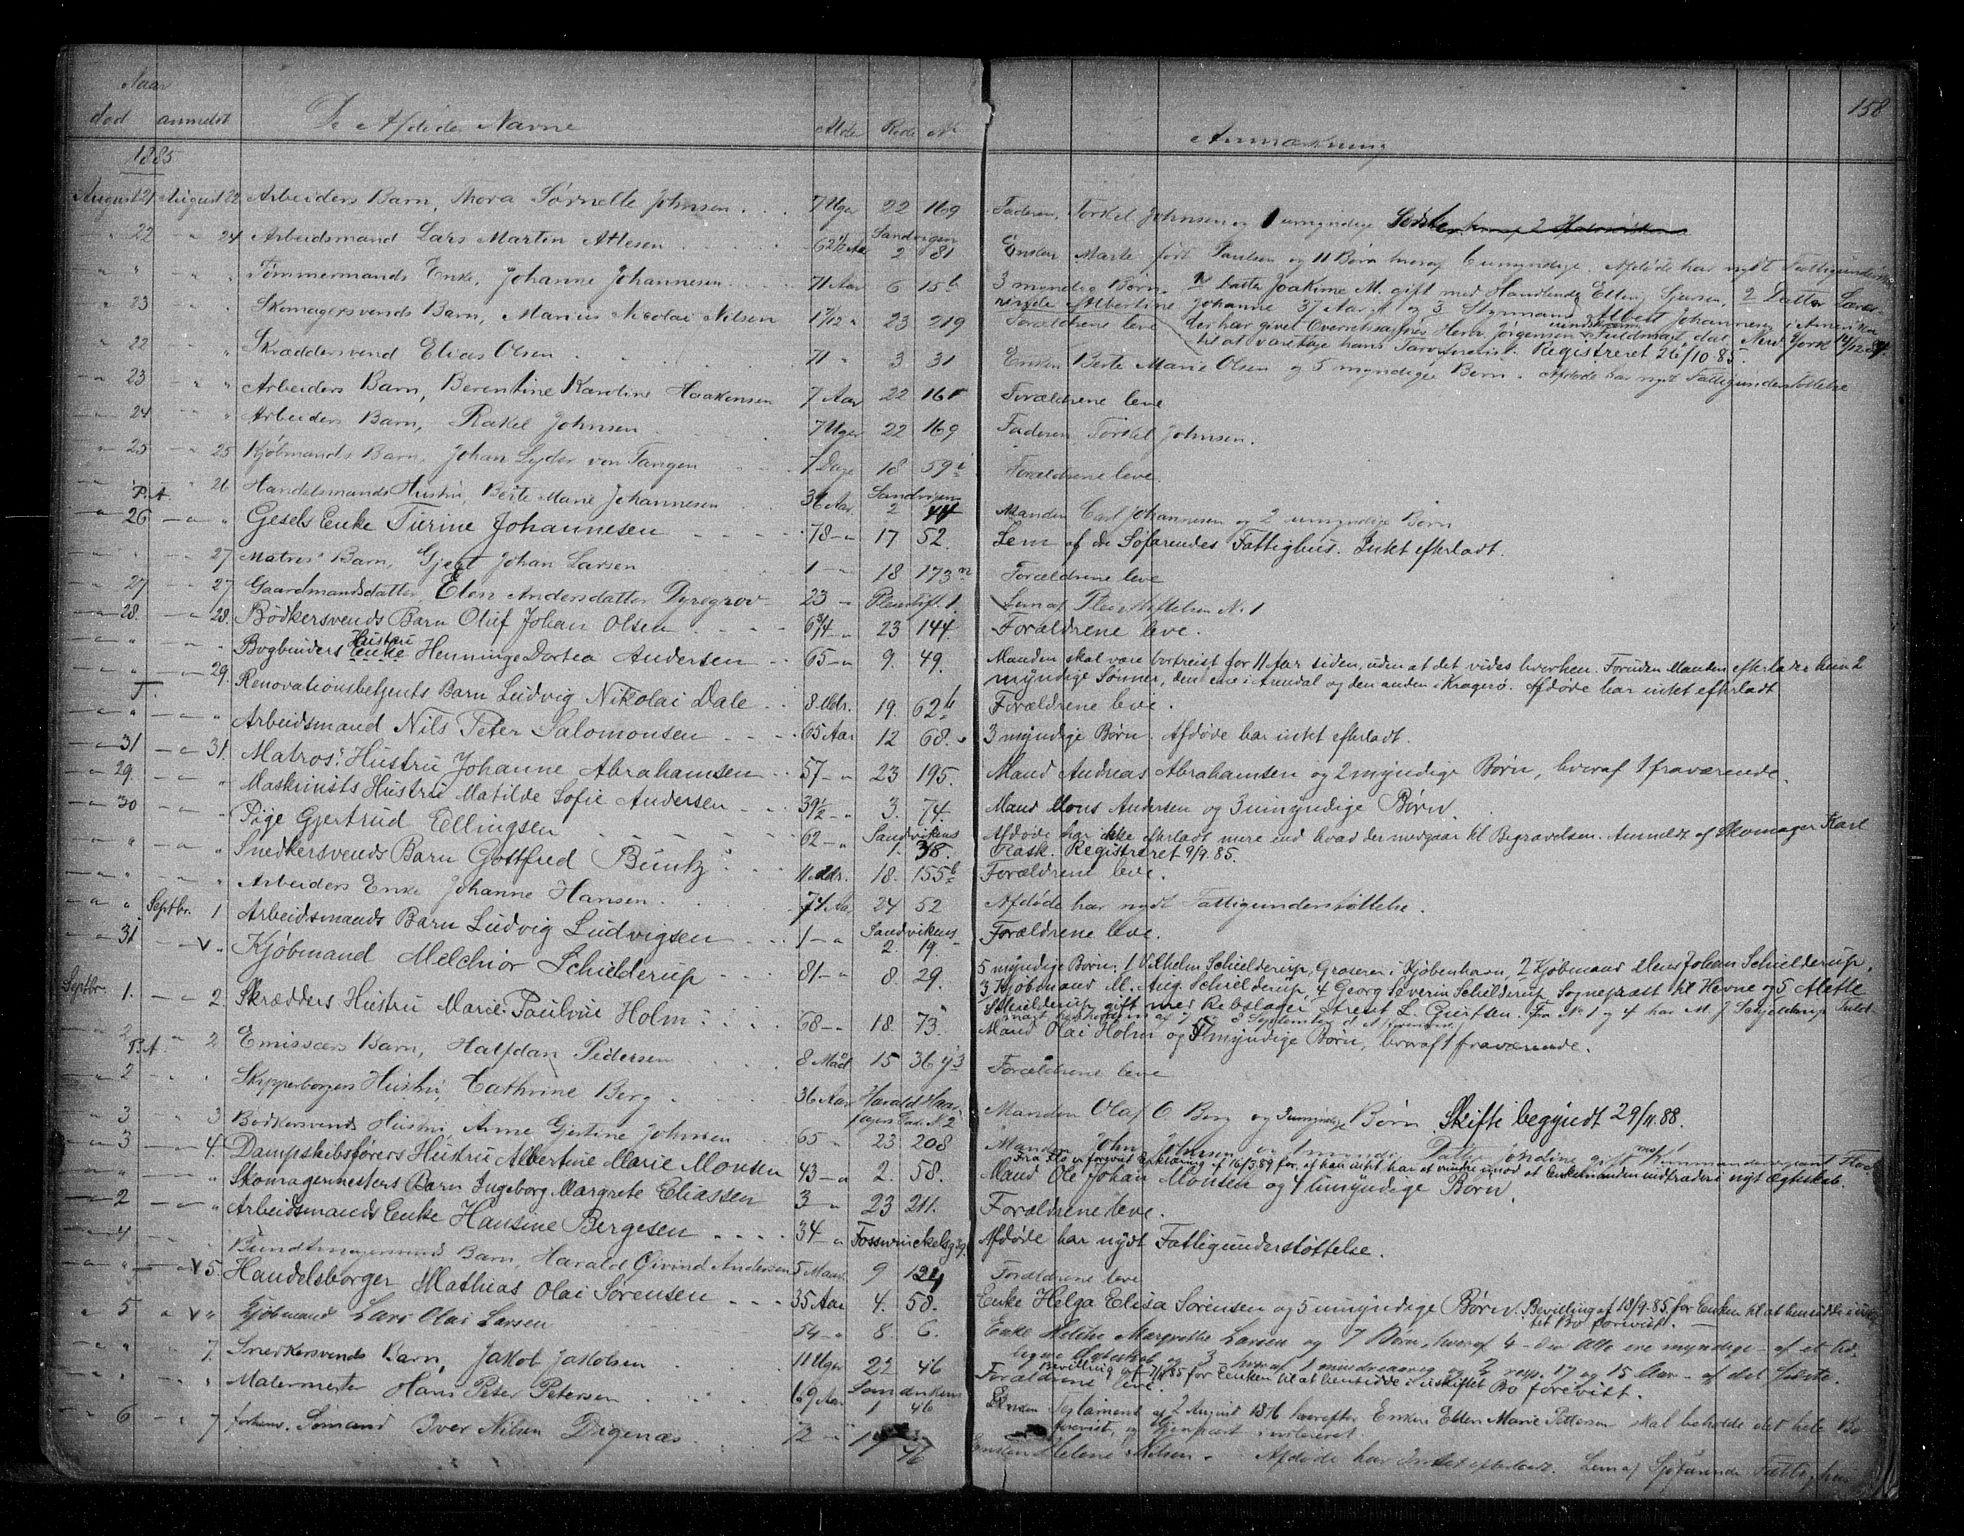 158
Naar
død anmeldt De Afdødes Navne Alder Rode No Anmærkning
1885
August 21 August 22 Arbeiders Barn, Thora Sørnette Johnsen 7 Uger 22 169 Faderen, Torkel Johnsen og 1 umyndige
" 22 " 24 Arbeidsmand Lars Martin Attesen 62 1/2 Aar Sandvigen 2 81 Enken Marte født Paulsen og 11 Børn hvoraf 6 umyndige. Afdøde har nydt Fattigunderst.
" " " " Tømmermands Enke, Johanne Johannesen 71 Aar 6 15b 3 myndige Børn. 1 Datter Joakime M. gift med Handlende Elling Sjursen, 2 Datter Lærer-
inde Albertine Johanne 37 Aar gl og 3 Styrmand Albert Johannesen i Amerika
" 23 " " Skomagersvends Barn, Marius Nicolai Nilsen 1 7/12 " 23 219 Forældrene leve
der har givet Overretssagfører Herr Jørgensen Fuldmagt dat. New York 14/12 84
til at varetage hans Tarv Registreret 26/10 85.
" 22 " " Skræddersvend Elias Olsen 71 " 3 31 Enken Berte Marie Olsen og 5 myndige Børn. Afdøde har nydt Fattigunderstøttelse
" 23 " " Arbeiders Barn, Berentine Karoline Haakensen 7 Aar 22 165 Forældrene leve
" 24 " " Arbeiders Barn, Rakel Johnsen 7 Uger 22 169 Faderen, Torkel Johnsen.
" 25 " 25 Kjøbmands Barn, Johan Lyder von Tangen 7 Dage 18 59i Forældrene leve.
P.A. " 26 Handelsmands Hustru, Berte Marie Johannesen 34 Aar Sandvigen 2 44 Manden Carl Johannesen og 2 umyndige Børn
" 26 " " Gesels Enke Turine Johannesen 78 " 17 52. Lem af de Søfarendes Fattighus. Intet efterladt.
" " " 27 Matros' Barn, Gjert Johan Larsen 1 " 18 173n Forældrene leve
" 27 " 27 Gaardmandsdatter, Elen Andersdatter Dyregrov 23 " Pleiestift. 1. Lem af Pleiestiftelsen No 1
" 28. " 28. Bødkersvends Barn Oluf Johan Olsen 6 3/4 " 23 144 Forældrene leve.
" " " " Bogbinders Hustru Enke Henninge Dortea Andersen 65 " 9. 49. Manden skal være bortreist for 11 Aar siden, uden at det vides hvorhen. Foruden Manden efterlader hun 2
myndige Sønner, den ene i Arendal og den anden i Kragerø. Afdøde har intet efterladt
" " " 29. Renovationsbetjents Barn Ludvig Nikolai Dale 8 Mdr. 19. 62b Forældrene leve.
T. " " Arbeidsmand Nils Peter Salomonsen 65 Aar 12 68. 3 myndige Børn. Afdøde har intet efterladt.
" 31 " 31. Matros' Hustru Johanne Abrahamsen 57 " 23 195. Mand Andreas Abrahamsen og 2 myndige Børn, hvoraf 1 fraværende.
" 29. " " Maskinists Hustru Matilde Sofie Andersen 39 1/2 " 3. 74. Mand Mons Andersen og 3 umyndige Børn.
" 30 " " Pige Gjertrud Ellingsen 62 " Sandvikens 1. 38. Afdøde har ikke efterladt mere end hvad der medgaar til Begravelsen. Anmeldt af Skomager Karl
Flask. Registreret 9/9. 85.
" " " " Snedkersvends Barn Gottfred Buntz 11 Mdr. 18. 155b Forældrene leve.
" " " " Arbeiders Enke Johanne Hansen 74 Aar 24 52 Afdøde har nydt Fattigunderstøttelse.
" " Septbr. 1 Arbeidsmands Barn Ludvig Ludvigsen 1 " Sandvikens 2. 19. Forældrene leve.
" 31 " V " Kjøbmand Melchior Schielderup 81 " 8. 29. 5 myndige Børn: 1 Vilhelm Schielderup, Grosserer i Kjøbenhavn, 2 Kjøbmand Mens Johan Schielderup,
3 Kjøbmand M. Aug. Schielderup, 4 Georg Severin Schielderup Sogneprest til Hevne og 5 Mette
Schielderup gift med Rebslager Streset L. Giertsen. Fra No 1 og 4 har M. J. Schjelderup Fuld-
Septbr. 1. " 2 Skrædders Hustru Marie Paulvie Holm 68 " 18. 73 Mand Olai Holm og myndige Børn, hvoraf 1 fraværende.
2 P.A. " 2 Emissærs Barn, Halfdan Pedersen 8 Maad 15 36 y3 Forældrene leve
" 2 " " Skipperborgers Hustru, Cathrine Berg 36 Aar Harald Haar-
fagers Gade No 2 Manden Olaf C. Berg og 3 umyndige Børn Skifte begyndt 29/11. 88.
" 3 " 3 Bødkersvends Hustru, Anne Gjertine Johnsen 65 " 23 208 Manden John Johnsen og 1 myndig Datter Jondine gift med
" 3 " 4. Dampskibsførers Hustru Albertine Marie Monsen 43 " 2. 58. Mand Ole Johan Monsen og 4 umyndige Børn.
" " " " Skomagermesters Barn Ingeborg Margrete Eliassen 3 " 23 211. Forældrene leve.
" 2 " " Arbeidsmands Enke Hansine Bergesen 34 " Fosswinckelsg 39. Afdøde har nydt Fattigunderstøttelse.
" 4 " " Bundtmagersvends Barn, Harald Øivind Andersen 5 Maan. 9 124 Forældrene leve
" " " V 5. Handelsborger Mathias Olai Sørensen 35 Aar 4. 58. Enke Helga Elisa Sørensen og 5 umyndige Børn. Bevilling af 18/9. 85. for Enken til at hensidde i uskif-
tet Bo forevist.
" 5 " V " Kjøbmand Lars Olai Larsen 54 " 8 6. Enke Margrethe Larsen og 7 Børn, hvoraf 4 alle ere myndige - af et tid-
ligere Ægteskab og 3 hvoraf 1 mindreaarig og 2 resp. 17 og 15 Aar - af det sidste.
Bevilling af 85 for Enken til at hensidde i uskiftet Bo forevist.
" " " 7. Snedkersvends Barn, Jakob Jakobsen 11 Uger 22 46 Forældrene leve.
" " " " Malermester Hans Peter Petersen 69 Aar Sandvikens 1 46 Enken Testament af 2 August 1876 hvorefter Enken Ellen Marie Pettersen skal beholde det hele Bo
forevist, og Gjenpart indleveret.
" 6 " 7 forhenv. Sømand Iver Nilsen Digenæs 72 " 17 Enken Helene Nilsen. Afdøde har Intet efterladt. Lem af Søfarende Fattighus